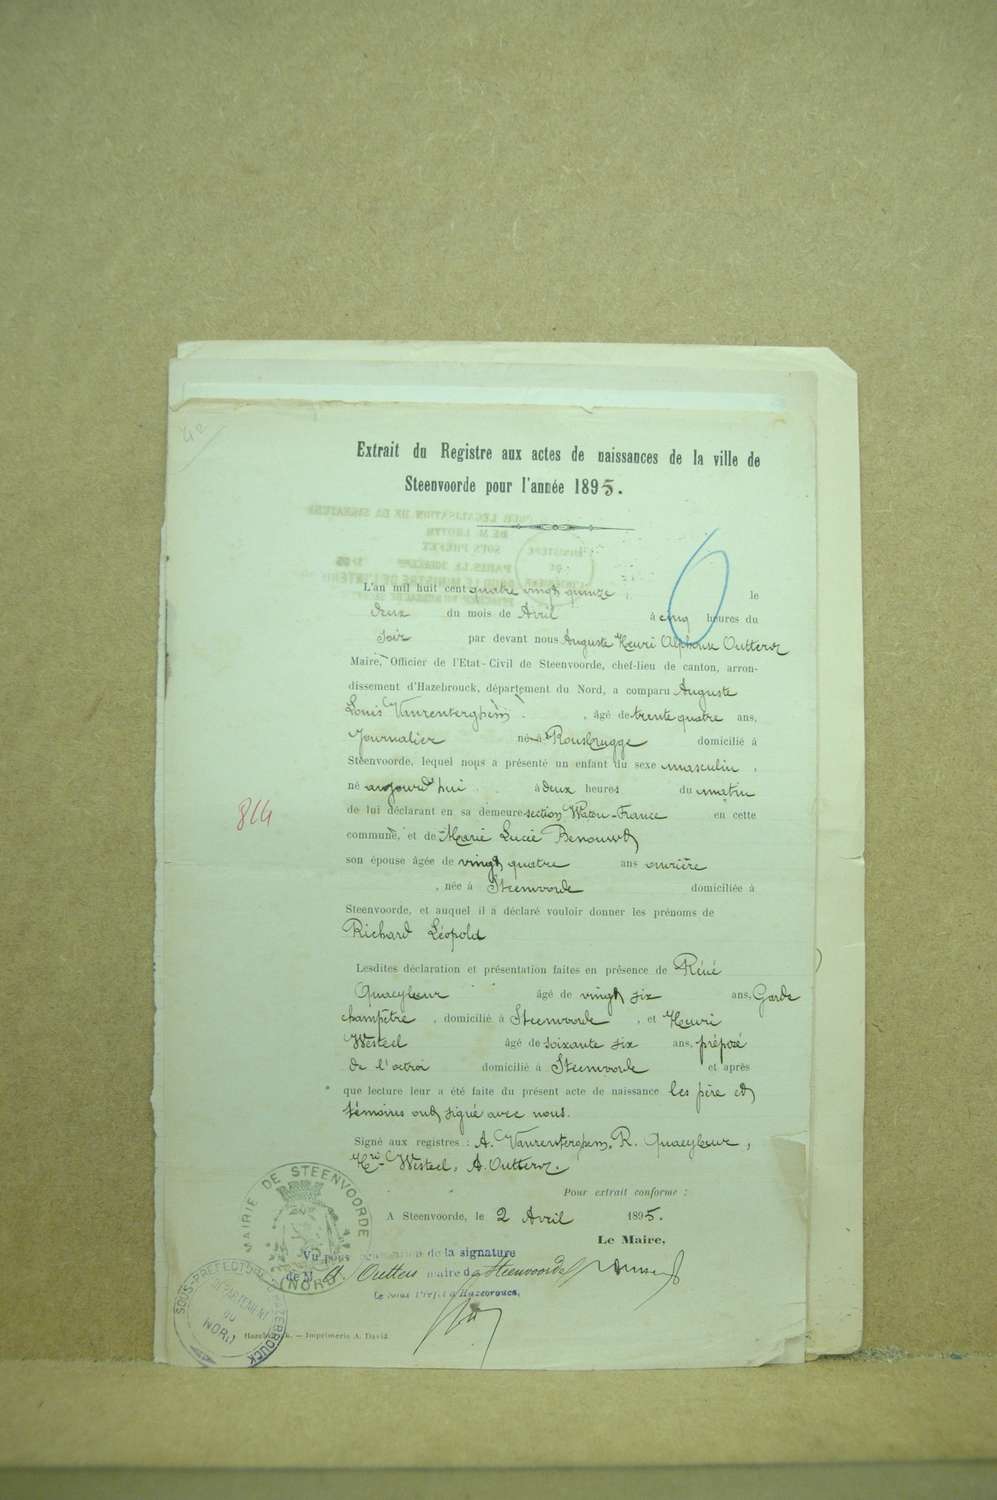 42
Extrait du Registre aux actes de naissances de la ville de
Steenvoorde pour l'année 1895.
L'an mil huit cent quatre vingt quinze, le
deux du mois de Avril à cinq heures du
soir par devant nous Auguste Henri Alphonse Outters
Maire, Officier de l'Etat-Civil de Steenvoorde, chef-lieu de canton, arron-
dissement d'Hazebrouck, département du Nord, a comparu Auguste
Louis Vanrenterghem, âgé de trente quatre ans,
Journalier né à Rousbrugge domicilié à
Steenvoorde, lequel nous a présenté un enfant du sexe masculin,
né aujourd'hui à deux heures du matin
de lui déclarant en sa demeure section Watou-France en cette
814
commune, et de Marie Lucie
son épouse âgée de vingt quatre ans ouvrière
, née à Steenvoorde domiciliée à
Steenvoorde, et auquel il a déclaré vouloir donner les prénoms de
Richard Léopold
Lesdites déclaration et présentation faites en présence de Réné
Quaeyleur âgé de vingt six ans, Garde
champêtre, domicilié à Steenvoorde, et Henri
Westeel âgé de soixante six ans, préposé
de l'octroi domicilié à Steenvoorde et après
que lecture leur a été faite du présent acte de naissance les père et
témoins ont signé avec nous.
Signé aux registres : A. Vanrenterghem, R. Quaeyleur,
Hri Westeel, A. Outters.
Pour extrait conforme :
A Steenvoorde, le 2 Avril 1895.
Le Maire,
MAIRIE DE STEENVOORDE
(NORD)
Vu pour légalisation de la signature
de M. A. Outters maire de Steenvoorde
Le Sous Préfet d'Hazebrouck,
SOUS-PRÉFECTURE D'HAZEBROUCK
DÉPARTEMENT
DU
NORD
Hazebrouck. — Imprimerie A. David